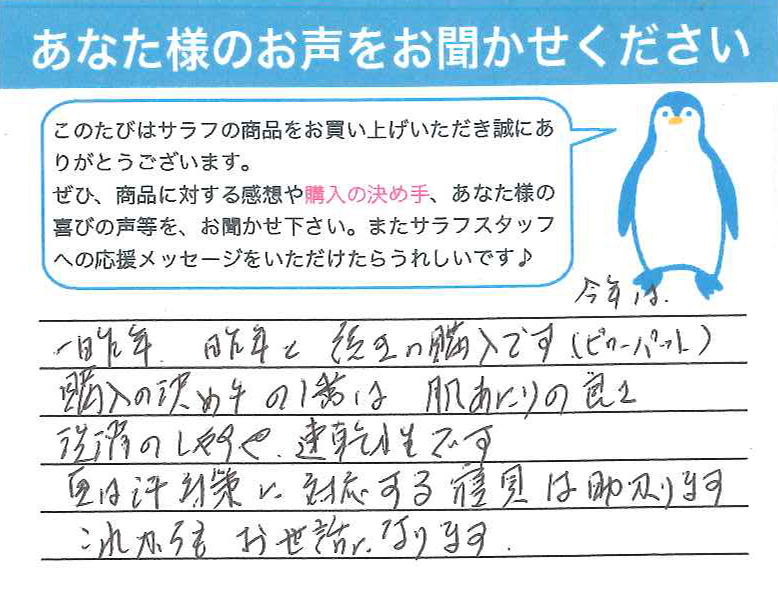 あなた様のお声をお聞かせください
このたびはサラフの商品をお買い上げいただき誠にあ
りがとうございます。
ぜひ、商品に対する感想や購入の決め手、あなた様の
喜びの声等を、お聞かせ下さい。またサラフスタッフ
への応援メッセージをいただけたらうれしいです♪
今年は.
一昨年. 昨年と 続きの購入です(ピローパット)
購入の決め手の1番は 肌あたりの良さ
洗濯のしやすさ. 速乾性です
夏は汗対策に対応する寝具は助かります
これからも お世話になります.